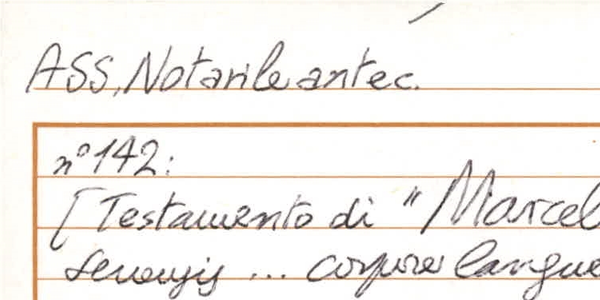 ASS, Notarile antec.
n° 142:
[Testamento di "Marcel
senensis ... corpore langue